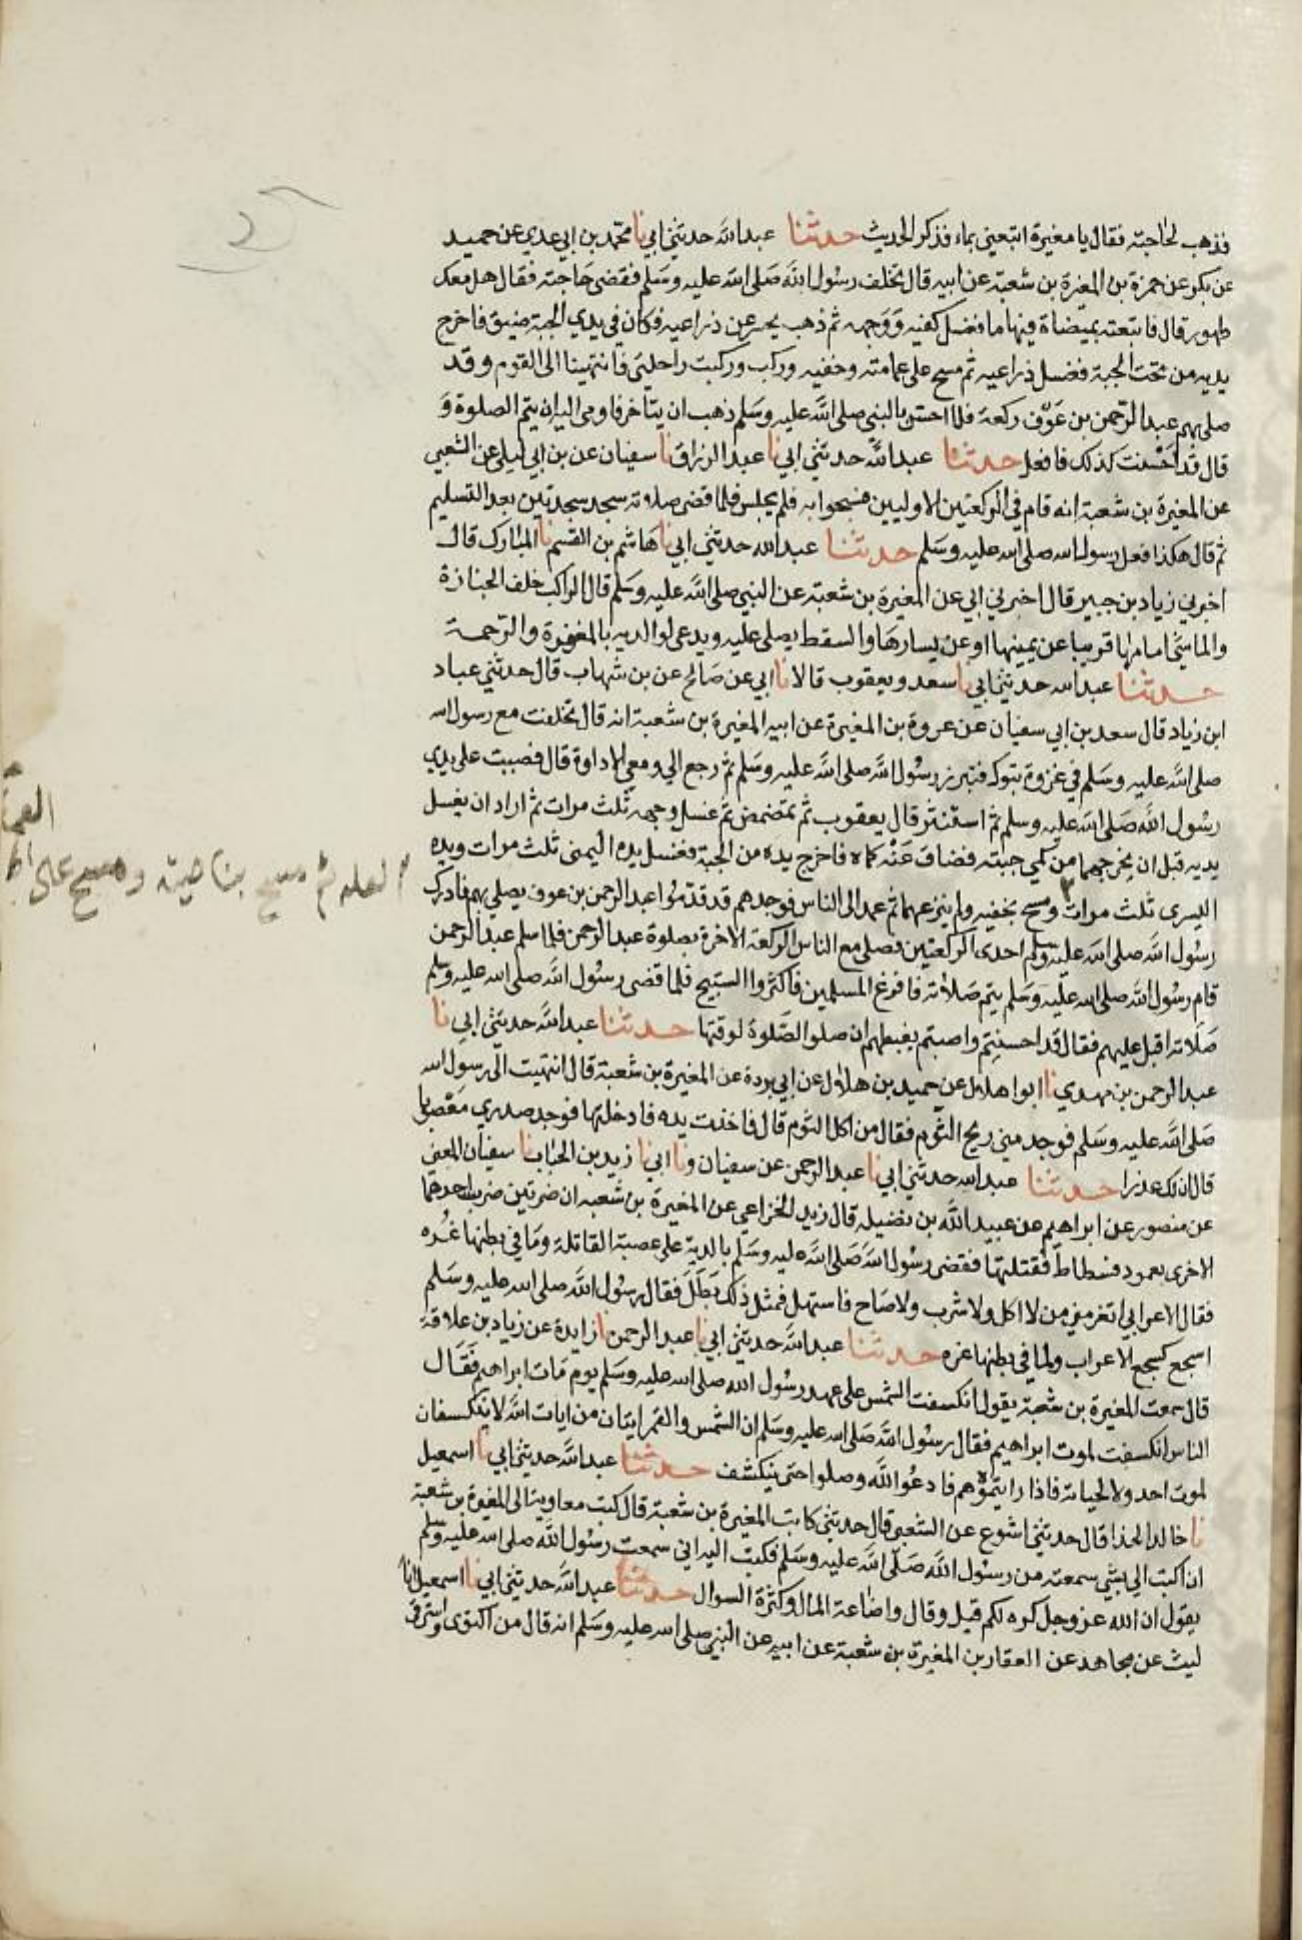 فذهب لحاجته فقال يا مغيرة اتبعني بماء فذكر الحديث حدثنا عبدالله حدثني ابي نا محمد بن ابي عدي عن حميد
عن بكر عن حمزة بن المغيرة بن شعبة عن ابيه قال تخلف رسول الله صلى الله عليه وسلم فقضى حاجته فقال هل معك
طهور قال فاتبعته بميضاة فيها ماء فغسل كفيه ووجهه ثم ذهب يحسر عن ذراعيه وكان في يدي الجبة ضيق فاخرج
يديه من تحت الجبة فغسل ذراعيه ثم مسح على عمامته وخفيه وركب وركبت راحلتي فانتهينا الى القوم وقد
صلى بهم عبد الرحمن بن عوف ركعة فلما احس بالنبي صلى الله عليه وسلم ذهب ان يتاخر فاومى اليه ان يتم الصلوة و
قال قد احسنت كذلك فافعل حدثنا عبدالله حدثني ابي نا عبد الرزاق نا سفيان عن بن ابي ليلى عن الشعبي
عن المغيرة بن شعبة انه قام في الركعتين الاوليين فسبحوا به فلم يجلس فلما قضى صلوته سجد سجدتين بعد التسليم
ثم قال هكذا فعل رسول الله صلى الله عليه وسلم حدثنا عبدالله حدثني ابي نا هاشم بن القسم نا المبارك قال
اخبرني زياد بن جبير قال اخبرني ابي عن المغيرة بن شعبة عن النبي صلى الله عليه وسلم قال الراكب خلف الجنازة
والماشي امامها قريبا عن يمينها او عن يسارها والسقط يصلى عليه ويدعى لوالديه بالمغفرة والرحمة
حدثنا عبدالله حدثني ابي نا سعد ويعقوب قالا نا ابي عن صالح عن بن شهاب قال حدثني عباد
ابن زياد قال سعد بن ابي سفيان عن عروة بن المغيرة عن ابيه المغيرة بن شعبة انه قال تخلفت مع رسول الله
صلى الله عليه وسلم في غزوة تبوك فتبرز رسول الله صلى الله عليه وسلم ثم رجع الي ومعي الاداوة قال فصببت على يدي
رسول الله صلى الله عليه وسلم ثم استنثر قال يعقوب ثم تمضمض ثم غسل وجهه ثلث مرات ثم اراد ان يغسل
يديه قبل ان يخرجهما من كمي جبته فضاق عنه كماه فاخرج يده من الجبة فغسل يده اليمنى ثلث مرات ويده
اليسرى ثلث مرات ومسح بخفيه ولم ينزعهما ثم عمد الى الناس فوجدهم قد قدموا عبد الرحمن بن عوف يصلي بهم فادرك
لعله ثم مسح بناصيته ومسح على
رسول الله صلى الله عليه وسلم احدى الركعتين فصلى مع الناس الركعة الاخرة بصلوة عبد الرحمن فلما سلم عبد الرحمن
قام رسول الله صلى الله عليه وسلم يتم صلاته فافزع المسلمين فاكثروا التسبيح فلما قضى رسول الله صلى الله عليه وسلم
صلاته اقبل عليهم فقال قد احسنتم واصبتم يغبطهم ان صلوا الصلوة لوقتها حدثنا عبدالله حدثني ابي نا
عبد الرحمن بن مهدي نا ابوا هلال عن حميد بن هلال عن ابي بردة عن المغيرة بن شعبة قال انتهيت الى رسول الله
صلى الله عليه وسلم فوجد مني ريح الثوم فقال من اكل الثوم قال فاخذت يده فادخلتها فوجد صدري معصوبا
قال ان لك عذرا حدثنا عبدالله حدثني ابي نا عبد الرحمن عن سفيان ونا ابي نا زيد بن الحباب نا سفيان المعنى
عن منصور عن ابراهيم عن عبيد الله بن نضيله قال زيد الخزاعي عن المغيرة بن شعبه ان ضرتين ضربت احدهما
الاخرى بعمود فسطاط فقتلتها فقضى رسول الله صلى الله عليه وسلم بالدية على عصبة القاتلة وما في بطنها غره
فقال الاعرابي اتغرمني من لا اكل ولا شرب ولا صاح فاستهل فمثل ذلك بطل فقال رسول الله صلى الله عليه وسلم
اسجع كسجع الاعراب ولما في بطنها غره حدثنا عبدالله حدثني ابي نا عبد الرحمن نا زايدة عن زياد بن علاقة
قال سمعت المغيرة بن شعبة يقول انكسفت الشمس على عهد رسول الله صلى الله عليه وسلم يوم مات ابراهيم فقال
الناس انكسفت لموت ابراهيم فقال رسول الله صلى الله عليه وسلم ان الشمس والقمر ايتان من ايات الله لا ينكسفان
لموت احد ولا لحياته فاذا رايتموهم فادعوا الله وصلوا حتى ينكشف حدثنا عبدالله حدثني ابي نا اسمعيل
نا خالد الحذا قال حدثني اشوع عن الشعبي قال حدثني كاتب المغيرة بن شعبة قال كتب معاوية الى المغيرة بن شعبة
ان اكتب الي بشي سمعته من رسول الله صلى الله عليه وسلم فكتب اليه اني سمعت رسول الله صلى الله عليه وسلم
يقول ان الله عز وجل كره لكم قيل وقال واضاعة المال وكثرة السوال حدثنا عبدالله حدثني ابي نا اسمعيل انا
ليث عن مجاهد عن العقار بن المغيرة بن شعبة عن ابيه عن النبي صلى الله عليه وسلم انه قال من اكتوى واسترقى